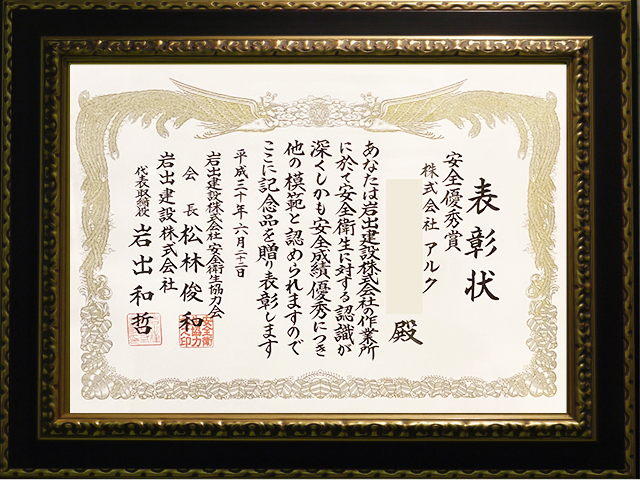 表彰状
安全優秀賞
株式会社 アルク
殿
あなたは岩出建設株式会社の作業所
に於て安全衛生に対する認識が
深くしかも安全成績優秀につき
他の模範と認められますので
ここに記念品を贈り表彰します
平成三十年六月二十二日
岩出建設株式会社 安全衛生協力会
会長 松林俊和
岩出建設株式会社
代表取締役 岩出和哲